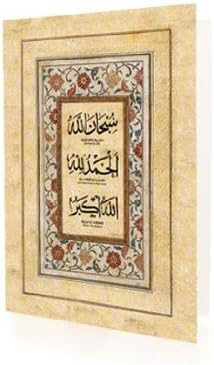 سُبْحَانَ اللَّه
الْحَمْدُ لِلَّه
اللَّهُ أَكْبَر